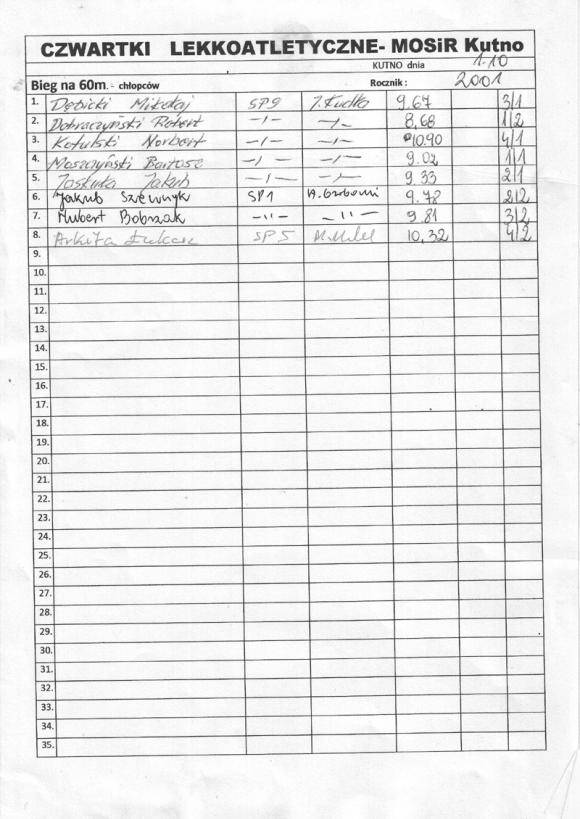 CZWARTKI LEKKOATLETYCZNE- MOSiR Kutno
KUTNO dnia 1.10
Bieg na 60m. - chłopców Rocznik : 2001
1. Dębicki Mikołaj SP9 J. Kudła 9,67 3/1
2. Dobraczyński Robert -//- -//- 8,68 1/2
3. Kotulski Norbert -//- -//- 10.90 4/1
4. Moszczyński Bartosz -//- -//- 9.02 1/1
5. Jaskuła Jakub -//- -//- 9.33 2/1
6. Jakub SP1 9.78 2/2
7. Hubert Bobrzak -//- -//- 9.81 3/2
8. Arkita Łukasz SP5 10,32 4/2
9.
10.
11.
12.
13.
14.
15.
16.
17.
18.
19.
20.
21.
22.
23.
24.
25.
26.
27.
28.
29.
30.
31.
32.
33.
34.
35.